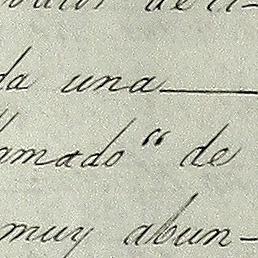 da una
lamado" de
muy abun-